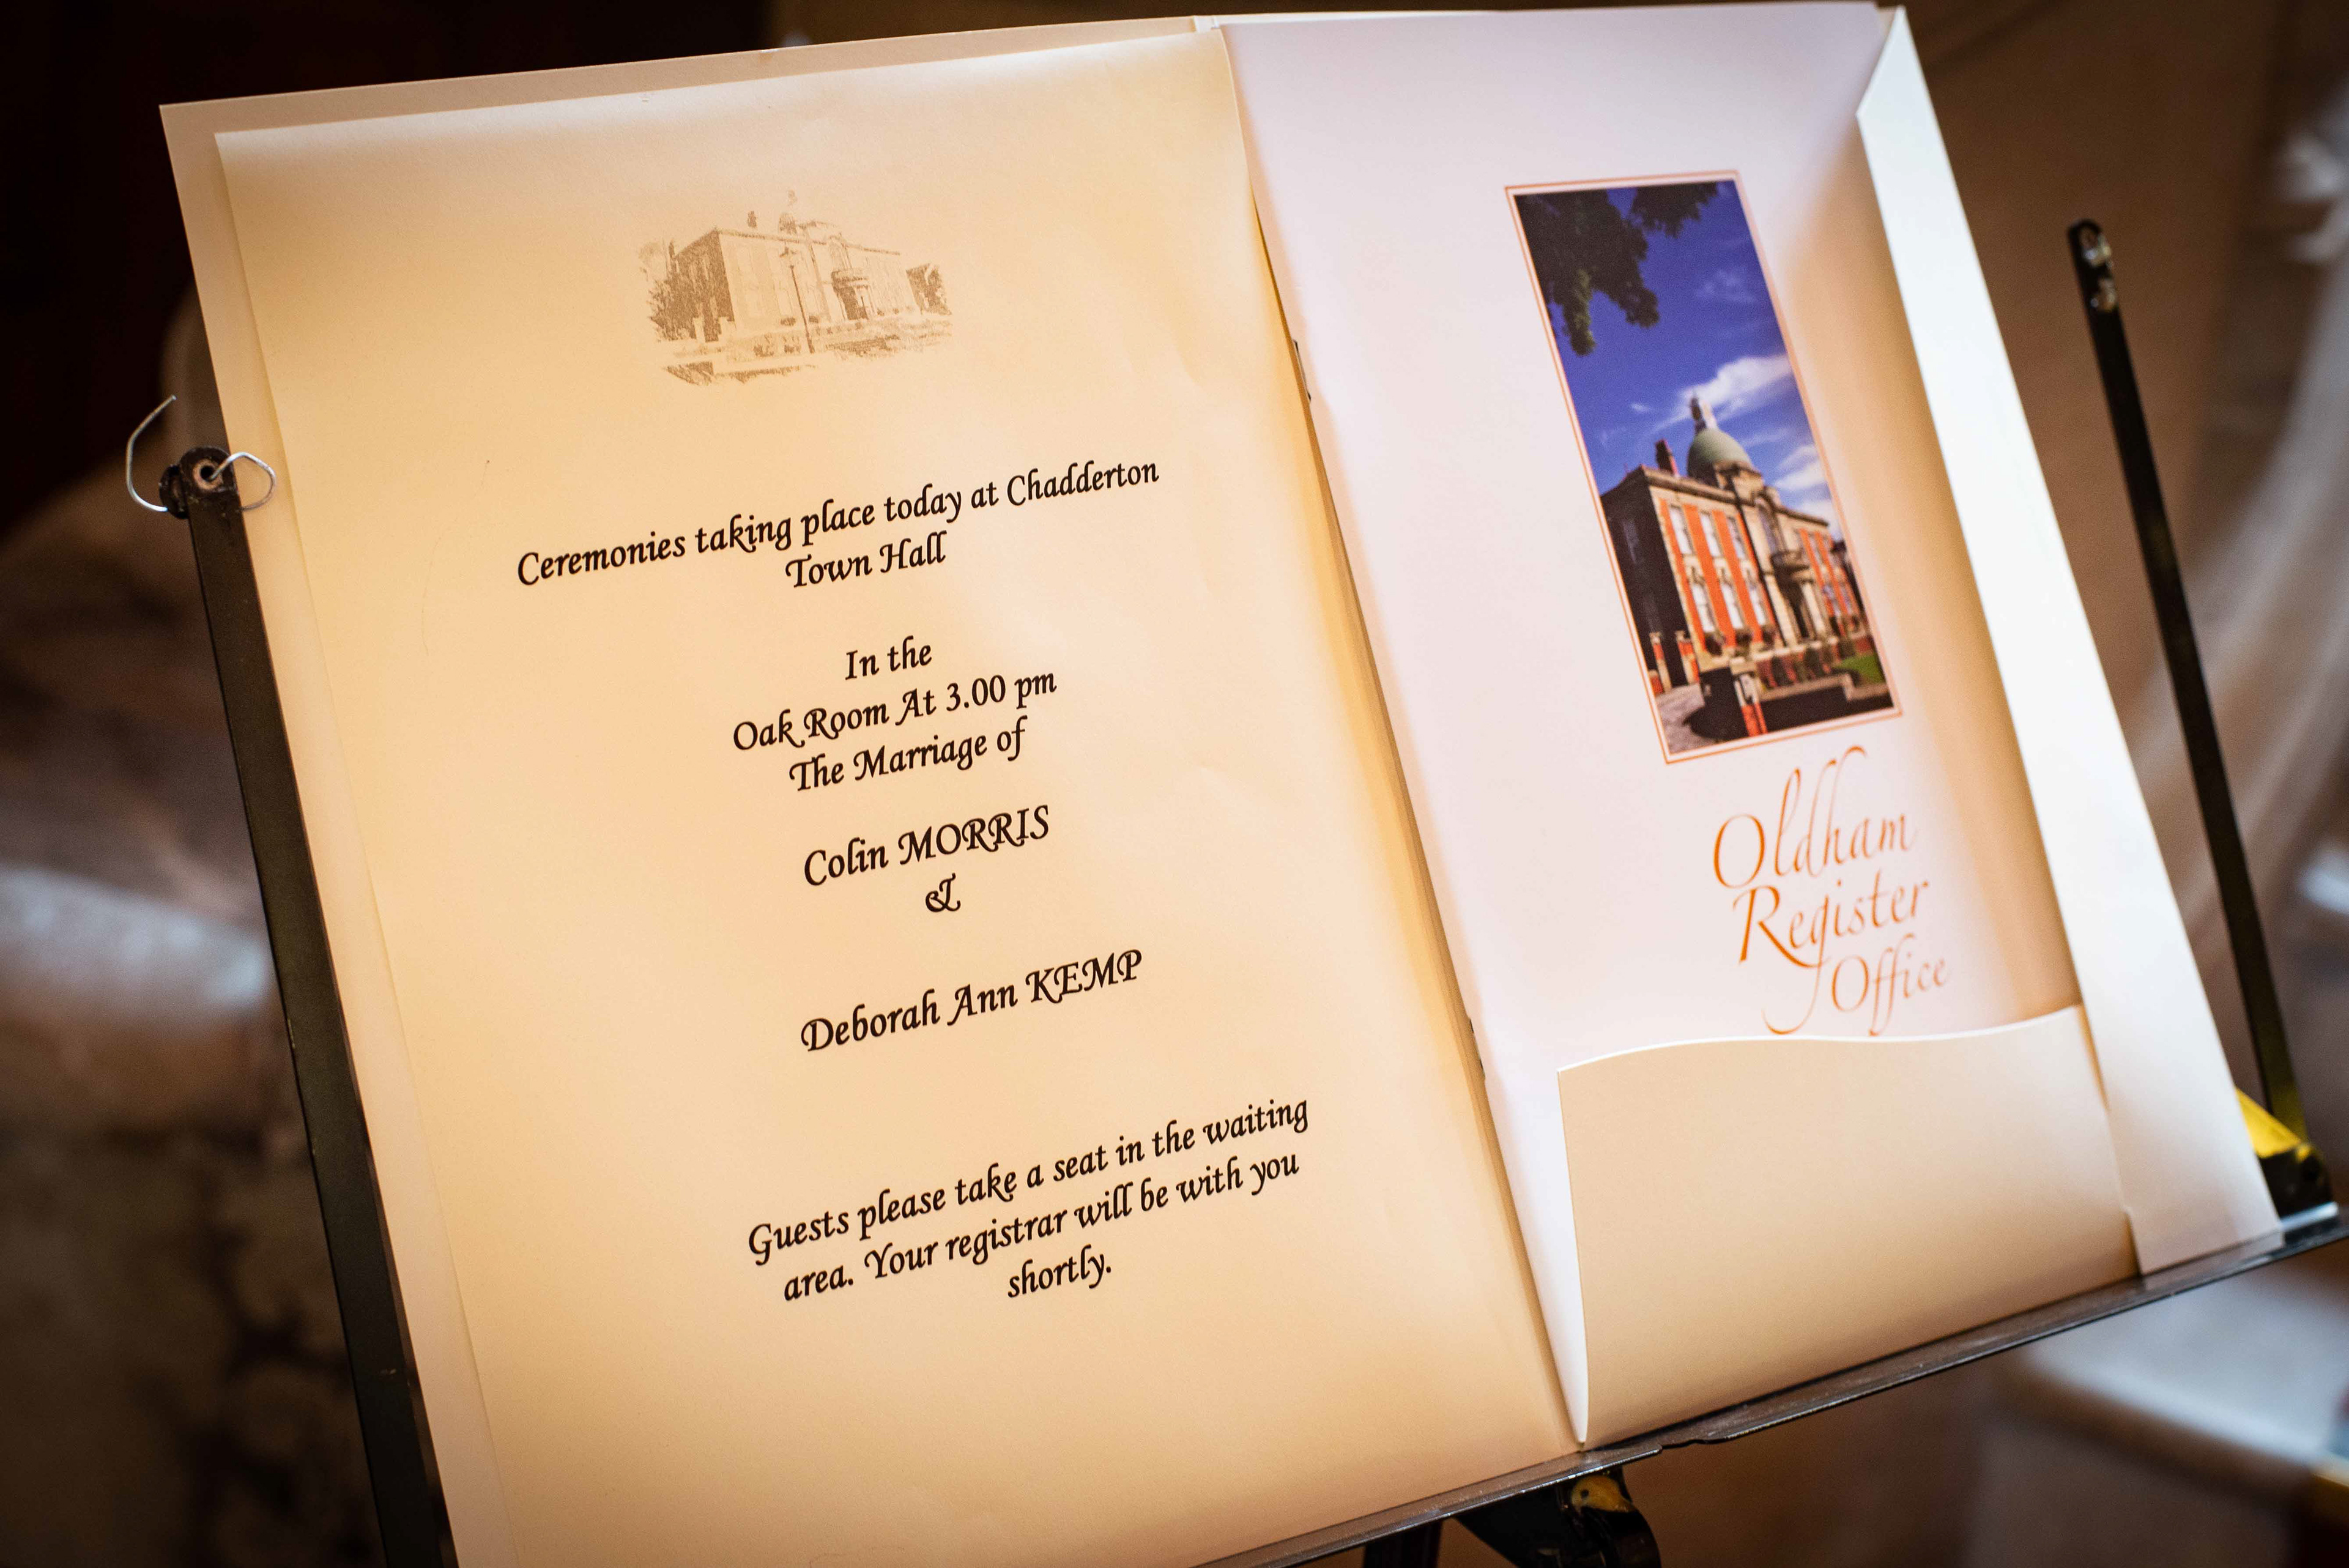 Ceremonies taking place today at Chadderton
Town Hall
In the
Oak Room At 3.00 pm
The Marriage of
Colin MORRIS
&
Deborah Ann KEMP
Guests please take a seat in the waiting
area. Your registrar will be with you
shortly.
Oldham
Register
Office